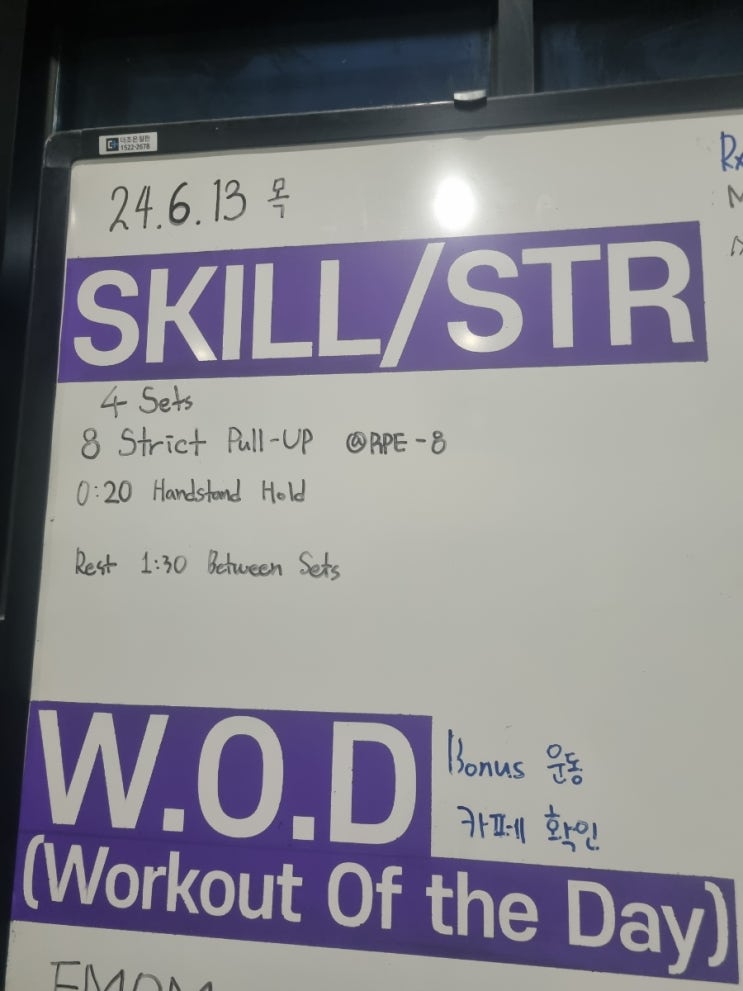 더조은칠판
1522-2678
24.6.13 목
Rx
SKILL/STR
4 Sets
8 Strict Pull-UP @RPE-8
0:20 Handstand Hold
Rest 1:30 Between Sets
W.O.D
Bonus 운동
카페 확인
(Workout Of the Day)
EMOM